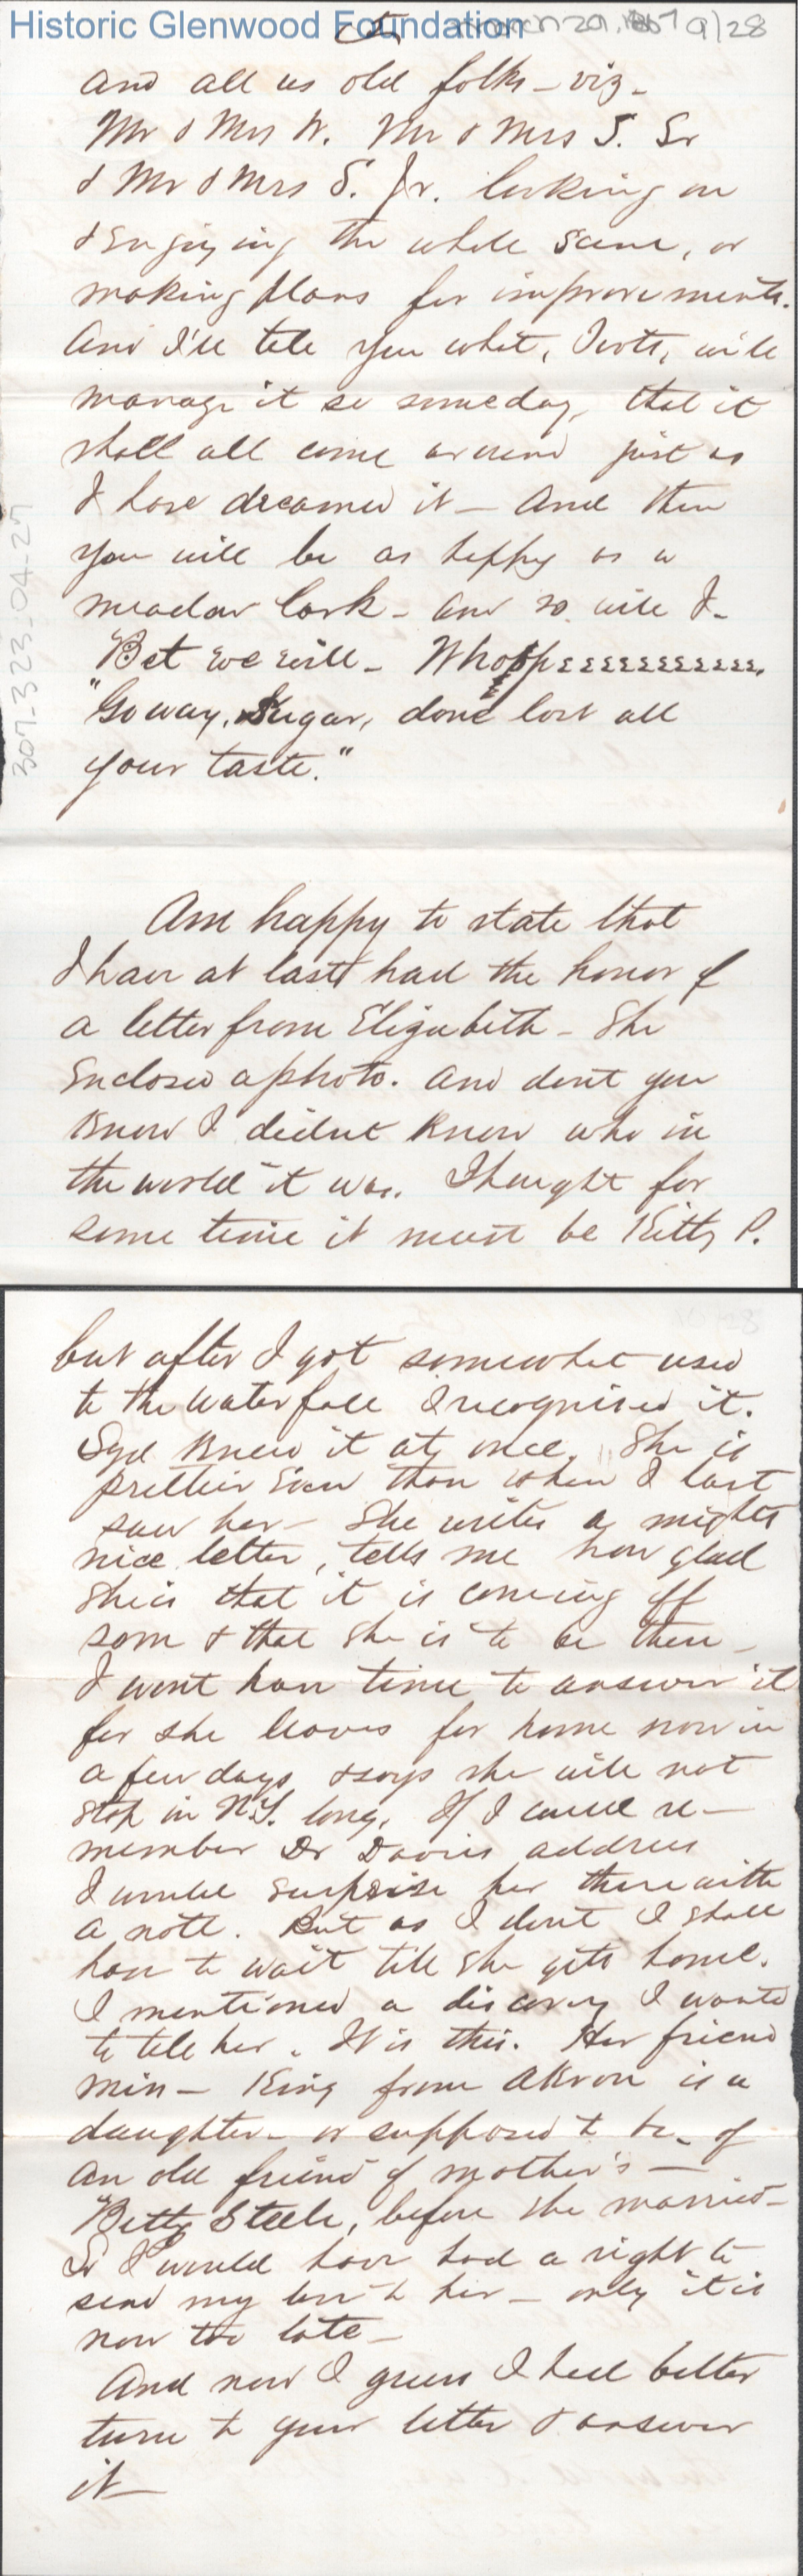 Historic Glenwood Foundation
March 29, 1867 9/28
and all us old folks – viz –
Mr & Mrs W. Mr & Mrs S. Sr
& Mr & Mrs S. Jr. looking on
& enjoying the whole scene, or
making plans for improvements.
And I'll tell you what, Toots, will
manage it so someday, that it
shall all come around just as
I have dreamed it – And then
you will be as happy as a
meadow lark – and so will I –
Bet we will –
"Go way, Sugar, done lost all
your taste."
307-323-04-27
Am happy to state that
I have at last had the honor of
a letter from Elizabeth – She
enclosed a photo. And dont you
know I didnt know who in
the world it was. Thought for
some time it must be Kitty P.
but after I got somewhat used
to the waterfall I recognised it.
Syd knew it at once. She is
prettier even than when I last
saw her – She writes a mighty
nice letter, tells me how glad
she is that it is coming off
soon & that she is to be there –
I wont have time to answer it
for she leaves for home now in
a few days & says she will not
stop in N.Y. long. If I could re-
member Dr Davis address
I would surprise her there with
a note. But as I dont I shall
have to wait till she gets home.
I mentioned a discovery I wanted
to tell her. It is this. Her friend
Miss – King from Akron is a
daughter – or supposed to be – of
an old friend of mother's –
Betty Steele, before she married –
So I would have had a right to
send my love to her – only it is
now too late –
And now I guess I had better
turn to your letter & answer
it –